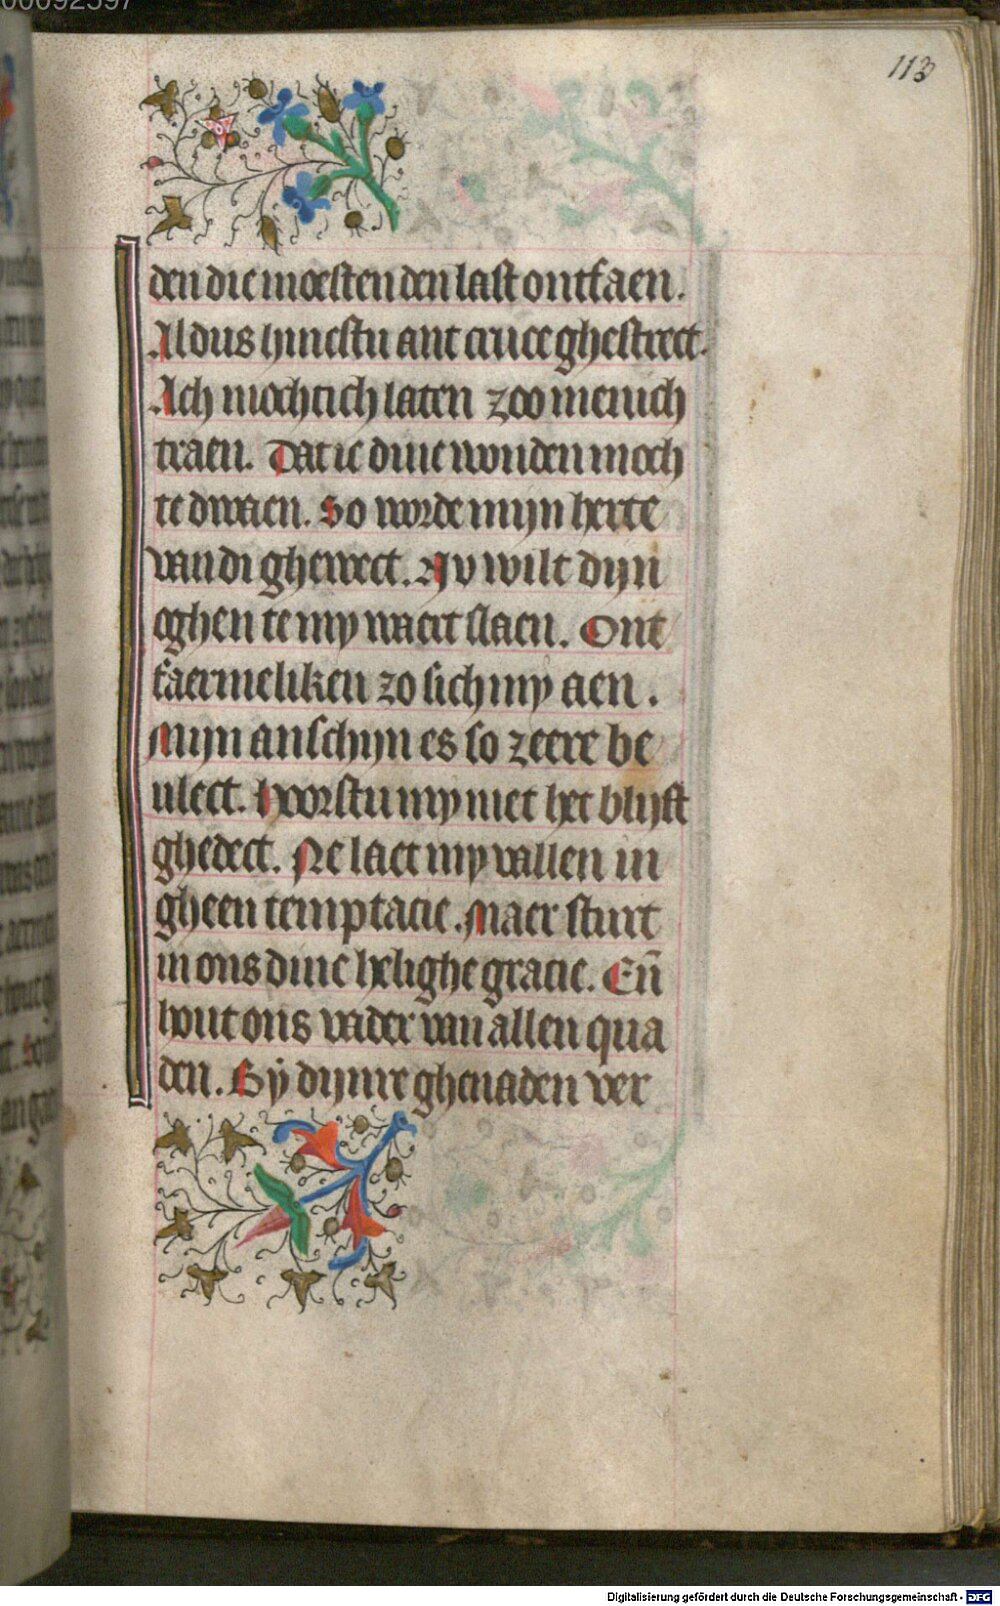 00092597
113
den die moesten den last ontfaen.
Aldus hincstu ant cruce ghestrect.
Ach mochtich laten zoo menich
traen. Dat ic dine wonden moch
te dwaen. So worde mijn herte
van di ghewect. Nv wilt dijn
oghen te my waert slaen. Ont
faermeliken zo sich my aen.
Mijn anschijn es so zeere be
ulect. Hoorstu my niet het blijft
ghedect. Ne laet my vallen in
gheen temptacie. Maer sturt
in ons dine helighe gracie. Eñ
hout ons vader van allen qua
den. By dijnre ghenaden ver
Digitalisierung gefördert durch die Deutsche Forschungsgemeinschaft - DFG